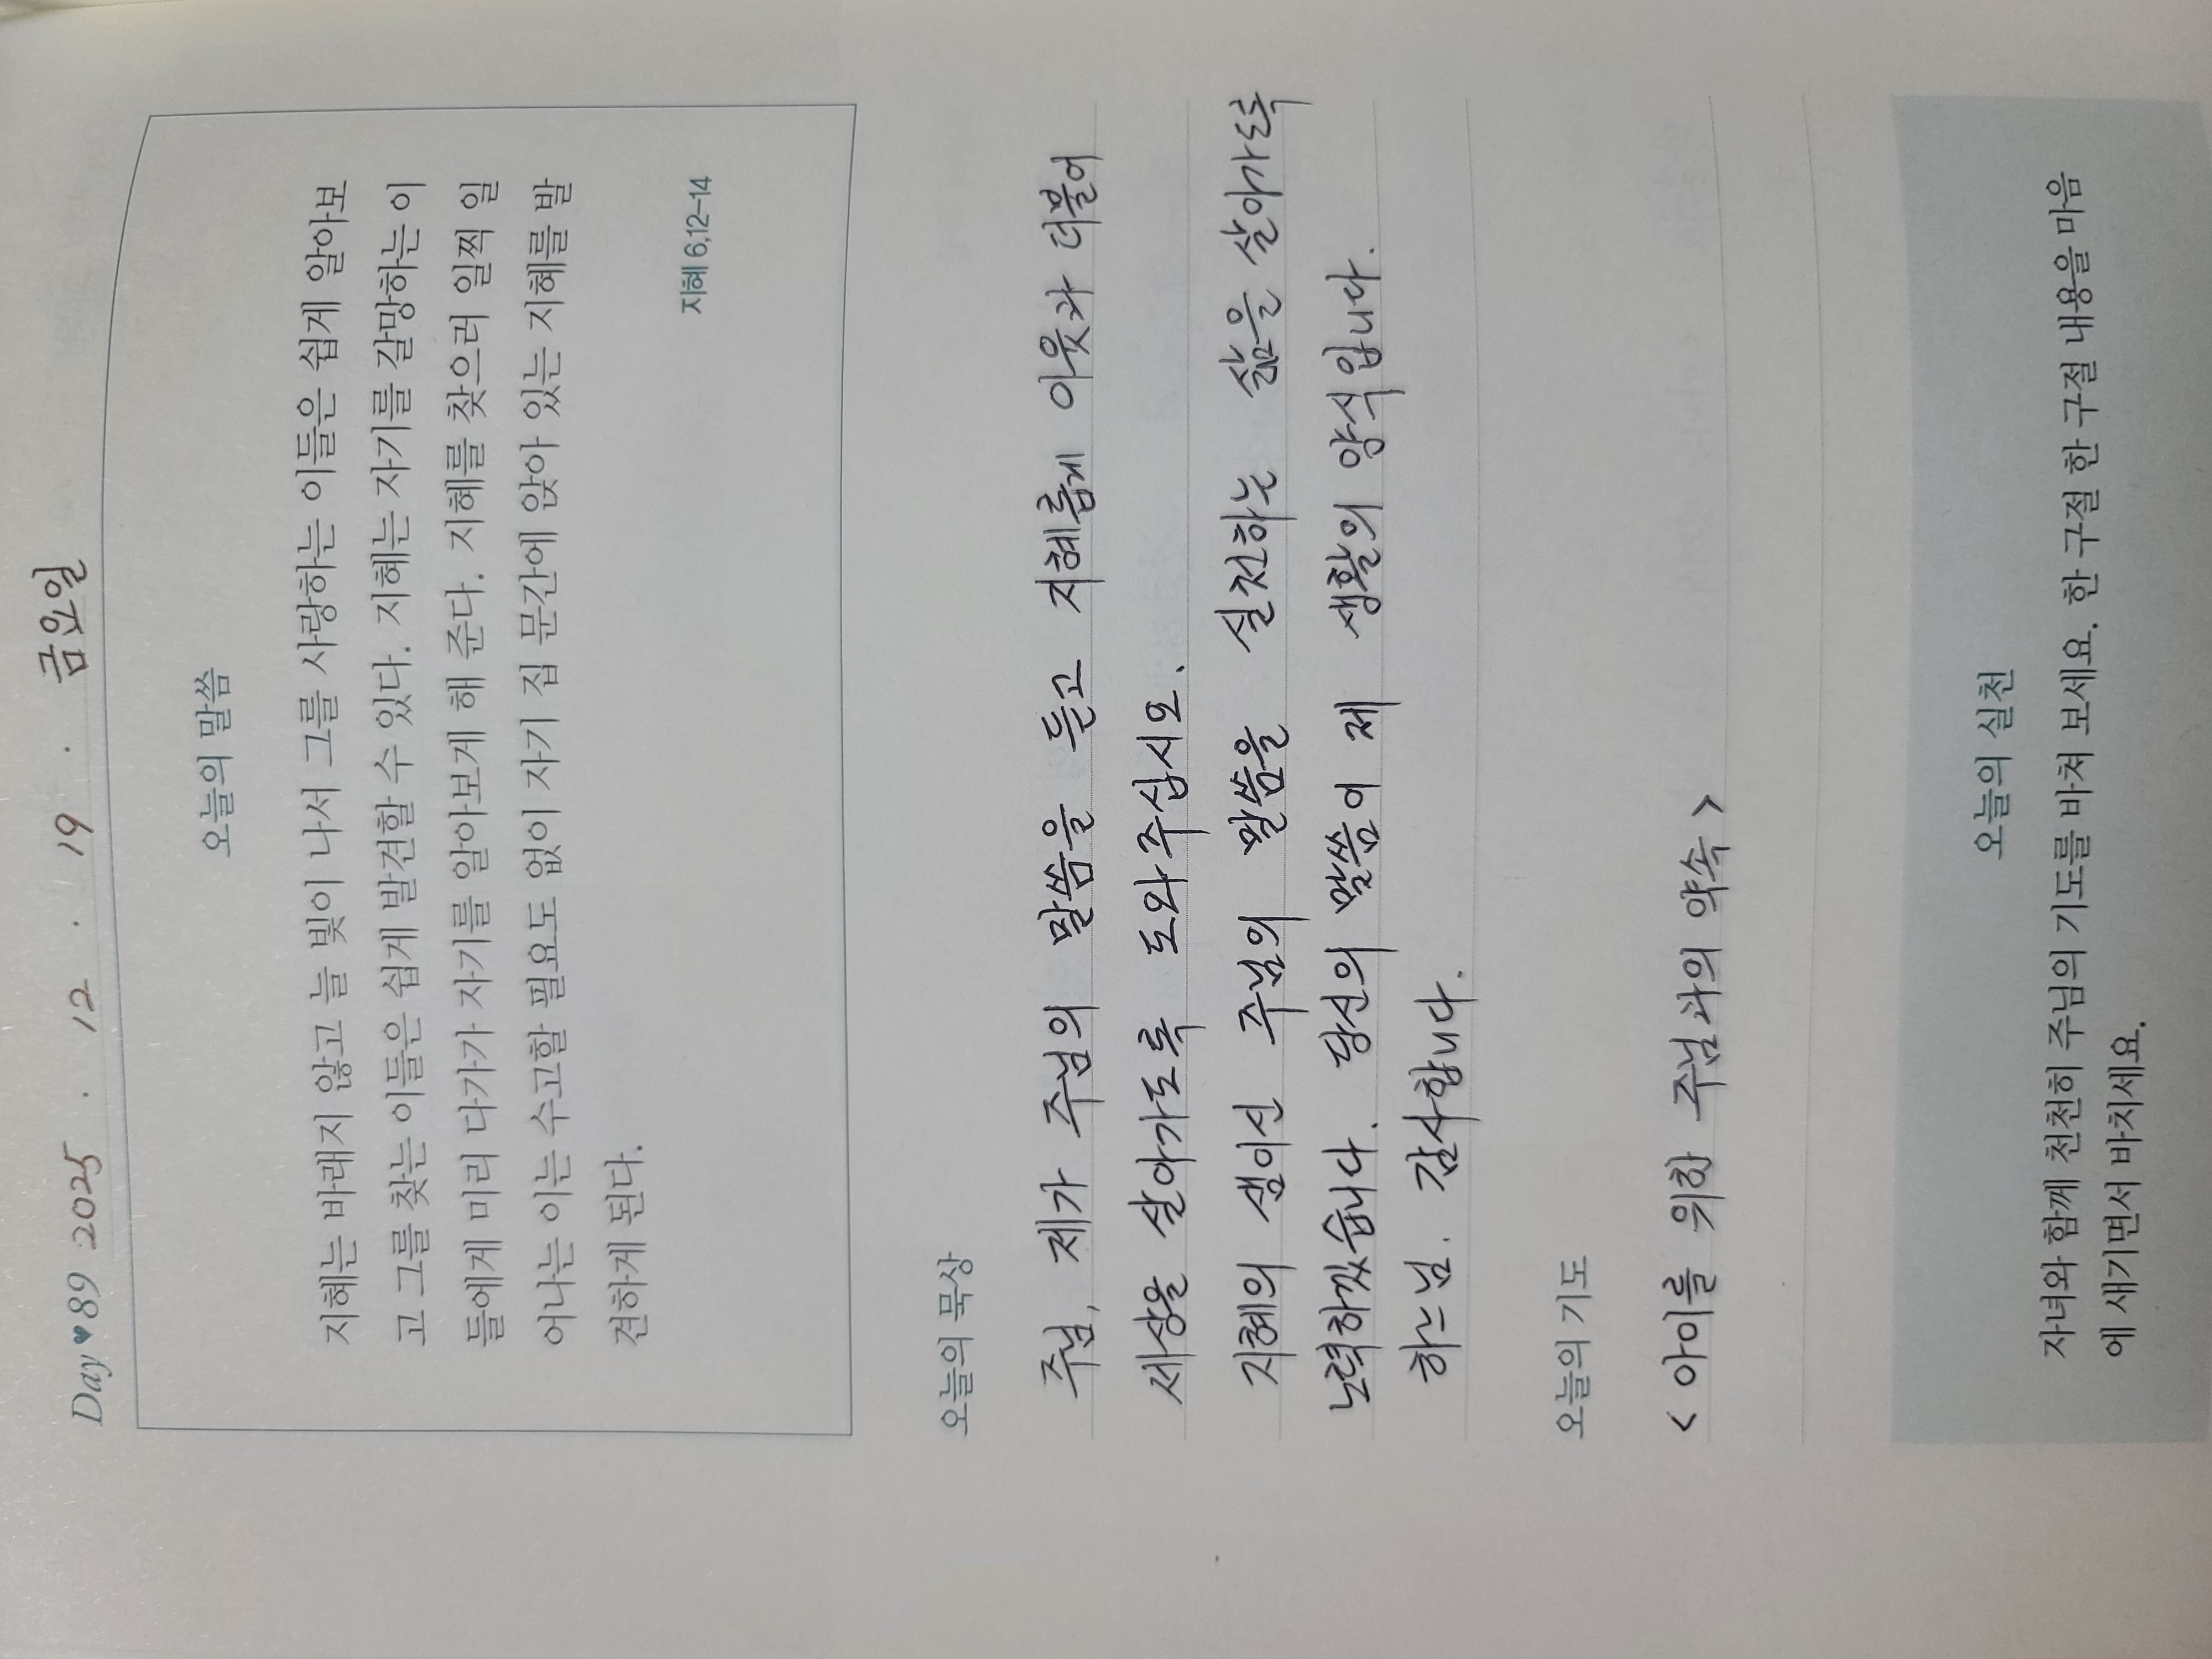 Day♥89 2025 . 12 . 19 . 금요일
오늘의 말씀
지혜는 바래지 않고 늘 빛이 나서 그를 사랑하는 이들은 쉽게 알아보
고 그를 찾는 이들은 쉽게 발견할 수 있다. 지혜는 자기를 갈망하는 이
들에게 미리 다가가 자기를 알아보게 해 준다. 지혜를 찾으러 일찍 일
어나는 이는 수고할 필요도 없이 자기 집 문간에 앉아 있는 지혜를 발
견하게 된다.
지혜 6,12-14
오늘의 묵상
주님, 제가 주님의 말씀을 듣고 지혜롭게 이웃과 더불어
세상을 살아가도록 도와주십시오.
지혜의 샘이신 주님의 말씀을 실천하는 삶을 살아가도록
노력하겠습니다. 당신의 말씀이 제 생활의 양식입니다.
하느님. 감사합니다.
오늘의 기도
< 아이를 위한 주님과의 약속 >
오늘의 실천
자녀와 함께 천천히 주님의 기도를 바쳐 보세요. 한 구절 한 구절 내용을 마음
에 새기면서 바치세요.